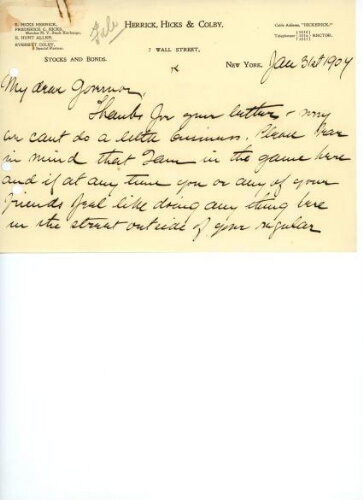 E. Hicks Herrick,
Frederick C. Hicks,
Member N. Y. Stock Exchange,
E. Hunt Allen,
Everett Colby,
Special Partner.
File
Herrick, Hicks & Colby,
7 Wall Street,
Stocks and Bonds.
Cable Address, "Hickerhol"
Telephones Rector.
New York. Jan 31st 1904
My dear Governor,
Thanks for your letter & sorry
we cant do a little business. Please bear
in mind that I am in the game here
and if at any time you or any of your
friends feel like doing any thing here
in the street outside of your regular